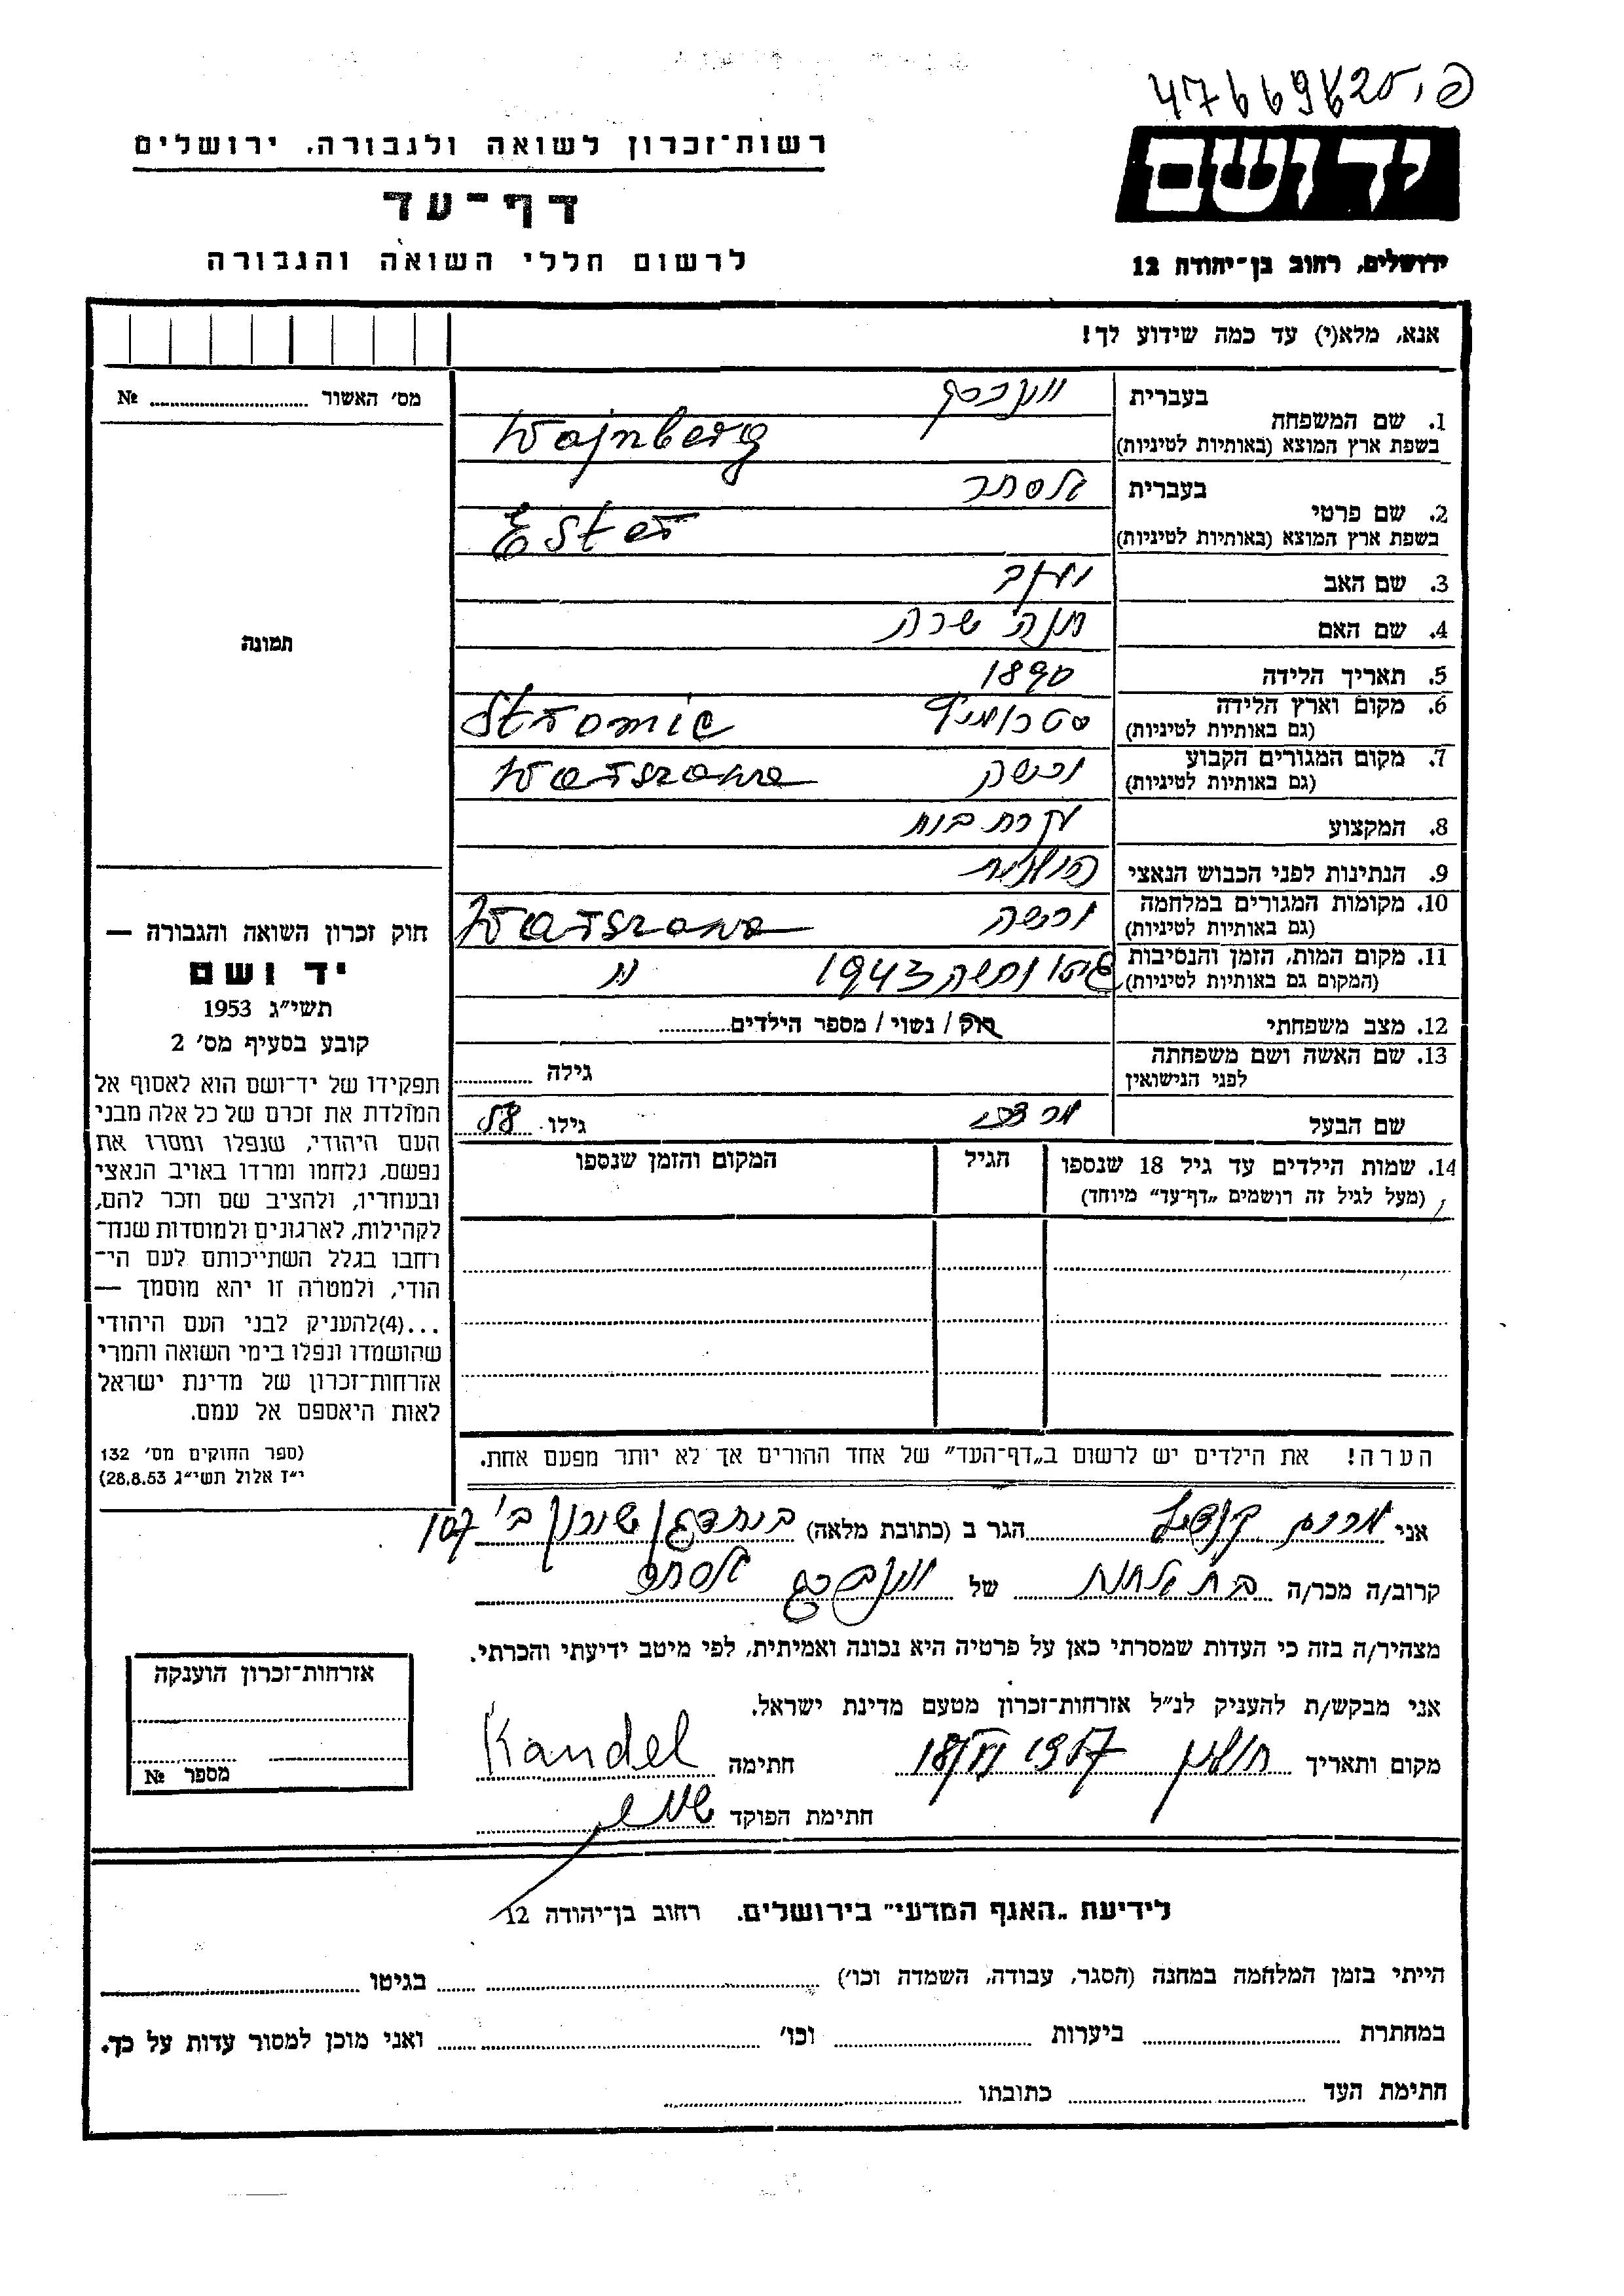 רשות־זכרון לשואה ולגבורה, ירושלים
דף־עד
לרשום חללי השואה והגבורה
יד ושם
ירושלים, רחוב בן־יהודה 12
אנא, מלא(י) עד כמה שידוע לך!
מס׳ האשור № 
1. שם המשפחה
בעברית
בשפת ארץ המוצא (באותיות לטיניות) Wajnberg
2. שם פרטי
בעברית אסתר
בשפת ארץ המוצא (באותיות לטיניות) Ester
3. שם האב
4. שם האם חנה שרה
5. תאריך הלידה 1890
6. מקום וארץ הלידה
(גם באותיות לטיניות)
7. מקום המגורים הקבוע ורשה Warszawa
(גם באותיות לטיניות)
8. המקצוע עקרת בית
9. הנתינות לפני הכבוש הנאצי פולנית
10. מקומות המגורים במלחמה ורשה Warszawa
(גם באותיות לטיניות)
11. מקום המות, הזמן והנסיבות גיטו ורשה 1943
(המקום גם באותיות לטיניות)
12. מצב משפחתי רוק / נשוי / מספר הילדים
13. שם האשה ושם משפחתה
לפני הנישואין
גילה
שם הבעל
גילו
14. שמות הילדים עד גיל 18 שנספו
(מעל לגיל זה רושמים „דף־עד״ מיוחד)
הגיל
המקום והזמן שנספו
הערה! את הילדים יש לרשום ב„דף־העד״ של אחד ההורים אך לא יותר מפעם אחת.
תמונה
חוק זכרון השואה והגבורה —
יד ושם
תשי״ג 1953
קובע בסעיף מס׳ 2
תפקידו של יד־ושם הוא לאסוף אל
המולדת את זכרם של כל אלה מבני
העם היהודי, שנפלו ומסרו את
נפשם, נלחמו ומרדו באויב הנאצי
ובעוזריו, ולהציב שם וזכר להם,
לקהילות, לארגונים ולמוסדות שנח־
רחבו בגלל השתייכותם לעם הי־
הודי, ולמטרה זו יהא מוסמך —
...(4)להעניק לבני העם היהודי
שהושמדו ונפלו בימי השואה והמרי
אזרחות־זכרון של מדינת ישראל
לאות היאספם אל עמם.
(ספר החוקים מס׳ 132
י״ז אלול תשי״ג 28.8.53)
אני הגר ב (כתובת מלאה)
קרוב/ה מכר/ה של אסתר
מצהיר/ה בזה כי העדות שמסרתי כאן על פרטיה היא נכונה ואמיתית, לפי מיטב ידיעתי והכרתי.
אני מבקש/ת להעניק לנ״ל אזרחות־זכרון מטעם מדינת ישראל.
מקום ותאריך חולון 18/VI 1957 חתימה Kandel
חתימת הפוקד
אזרחות־זכרון הוענקה
מספר №
לידיעת „האגף המדעי״ בירושלים, רחוב בן־יהודה 12
הייתי בזמן המלחמה במחנה (הסגר, עבודה, השמדה וכו׳) בגיטו
במחתרת ביערות וכו׳ ואני מוכן למסור עדות על כך.
חתימת העד כתובתו